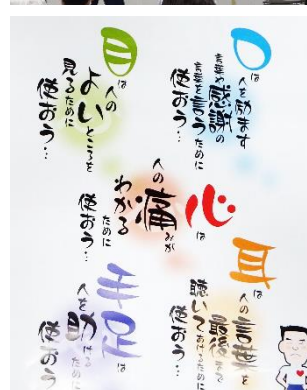 口は
人を励ます
言葉や感謝の
言葉を言うために
使おう…
目は
人の
よいところを
見るために
使おう…
心は
人の痛みが
わかる
ために
使おう…
耳は
人の言葉を
最後まで
聴いてあげるために
使おう…
手足は
人を助ける
ために
使おう…